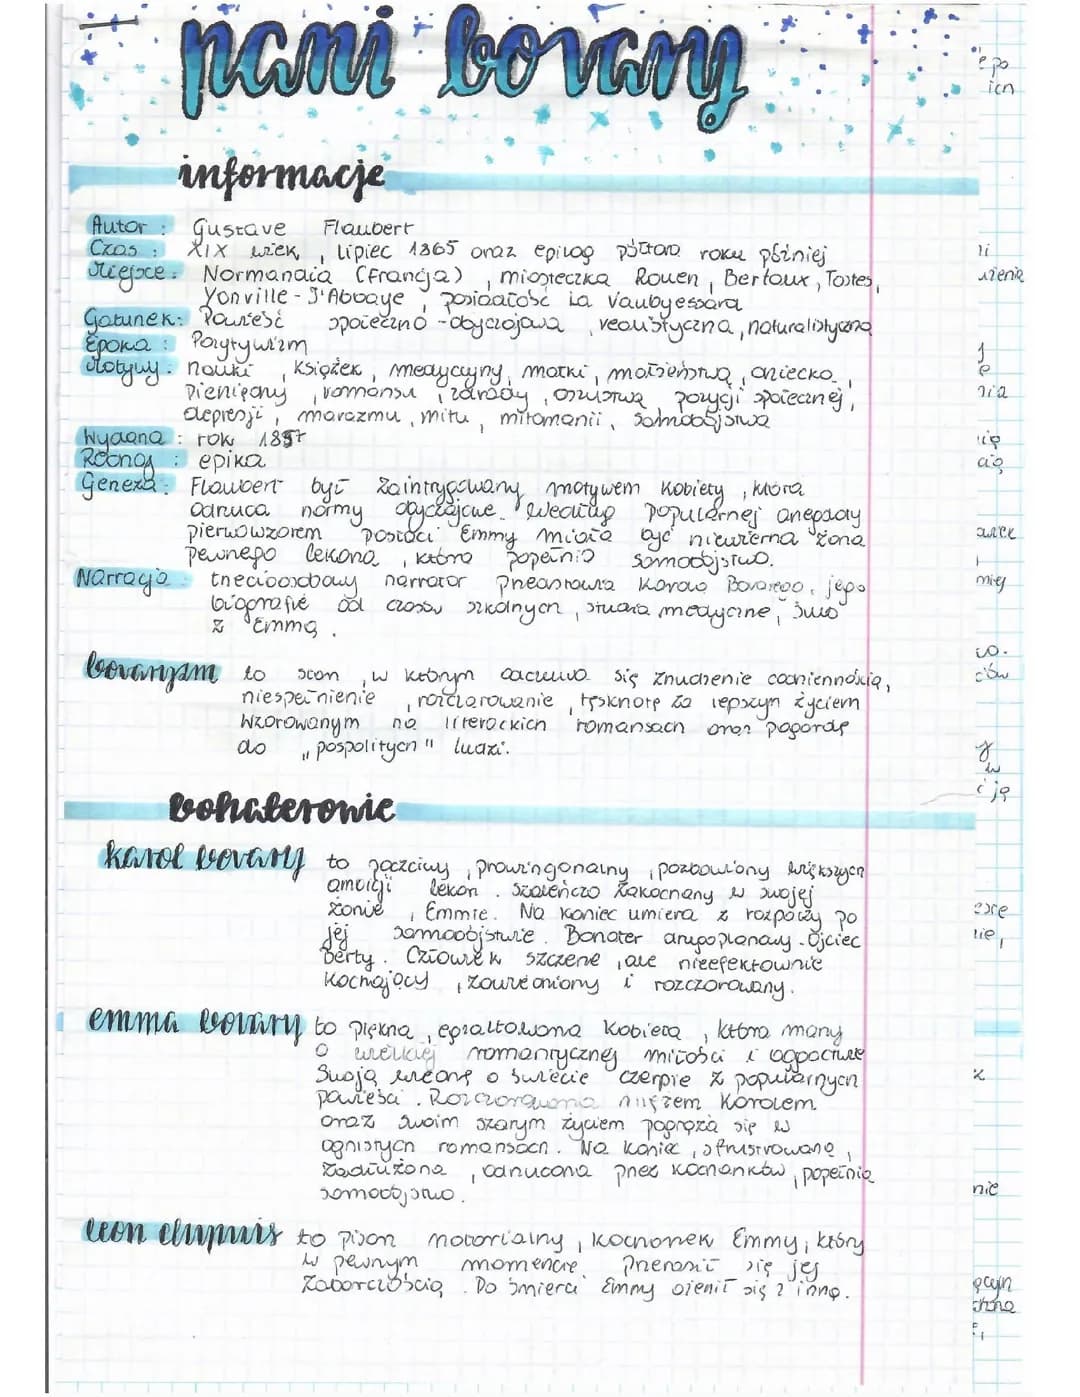 pani bovary
informacje
Autor : Gustave Flaubert
Czas : XIX wiek , lipiec 1865 oraz epilog półtora roku później
Miejsce : Normandia (Francja) , miasteczka Rouen , Bertoux , Tostes,
Yonville - J'Abbaye , posiadłość La Vaubyessara
Gatunek: Powieść społeczno - obyczajowa , realistyczna , naturalistyczna
Epoka : Pozytywizm
Motywy : nauki , książek , medycyny , matki , małżeństwa , dziecka ,
pieniędzy , romansu , zdrady , oszustwa pozycji społecznej ,
depresji , marazmu , mitu , mitomanii , samobójstwa
Wydana : rok 1857
Rodzaj : epika
Geneza : Flaubert był zaintrygowany motywem kobiety , która
odrzuca normy obyczajowe. Według popularnej anegdoty
pierwowzorem postaci Emmy miała być niewierna żona
pewnego lekarza , która popełniła samobójstwo.
Narracja : trzecioosobowy narrator przedstawia Karola Bovarego, jego
biografię od czasów szkolnych , studia medyczne , ślub
z Emmą .
bovaryzm to stan , w którym odczuwa się znudzenie codziennością,
niespełnienie , rozczarowanie , tęsknotę za lepszym życiem
wzorowanym na literackich romansach oraz pogardę
do „pospolitych" ludzi.
bohaterowie
karol bovary to poczciwy , prowincjonalny , pozbawiony większych
ambicji lekarz . Szaleńczo zakochany w swojej
żonie , Emmie. Na koniec umiera z rozpaczy po
jej samobójstwie. Bohater drugoplanowy. Ojciec
Berty. Człowiek szczerze , ale nieefektownie
kochający , zawiedziony i rozczarowany.
emma bovary to piękna , egzaltowana kobieta , która marzy
o wielkiej romantycznej miłości i bogactwie
Swoją wiedzę o świecie czerpie z popularnych
powieści . Rozczarowana mężem Karolem
oraz swoim szarym życiem pogrąża się w
ognistych romansach. Na koniec , sfrustrowana ,
zadłużona , odrzucona przez kochanków , popełnia
samobójstwo.
leon dupuis to pisarz notarialny , kochanek Emmy , który
w pewnym momencie przeraził się jej
zaborczością . Do śmierci Emmy ożenił się z inną.